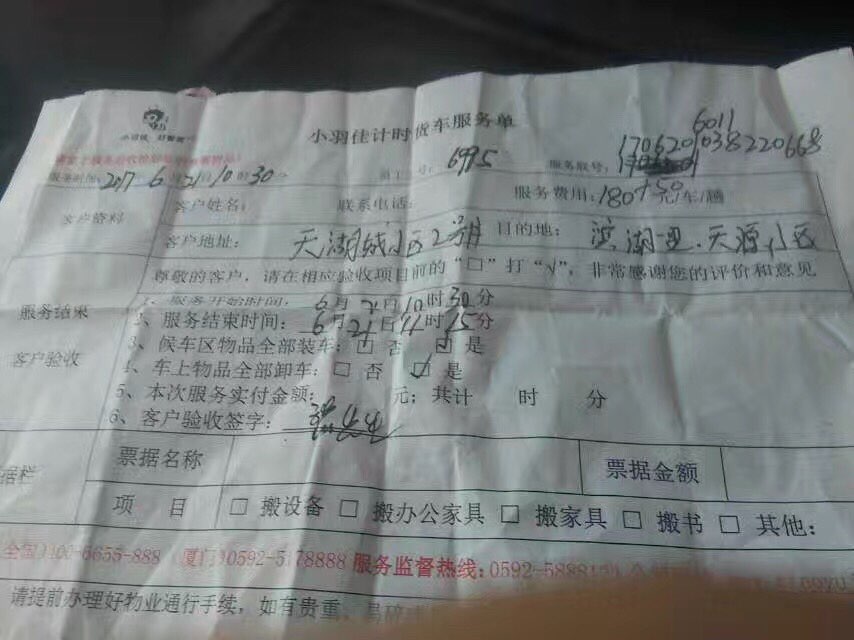 小羽佳计时货车服务单
服务时间: 2017 6 21 10 30
号: 6995
服务取号: 170620
6011
038220668
客户资料
客户姓名:
联系电话:
服务费用: 180+50元/车/趟
客户地址: 天湖城小区2号
目的地: 滨湖一里.天源小区
尊敬的客户，请在相应验收项目前的“□”打“√”，非常感谢您的评价和意见
服务结束
客户验收
1、服务开始时间: 6月21日10时30分
2、服务结束时间: 6月21日11时15分
3、候车区物品全部装车: □ 否 □ 是
4、车上物品全部卸车: □ 否 ☑ 是
5、本次服务实付金额: 元; 共计 时 分
6、客户验收签字:
据栏
票据名称
票据金额
项 目 □ 搬设备 □ 搬办公家具 □ 搬家具 □ 搬书 □ 其他:
(全国)400-6655-888 (厦门)0592-5178888 服务监督热线:0592-5888
请提前办理好物业通行手续，如有贵重、易碎